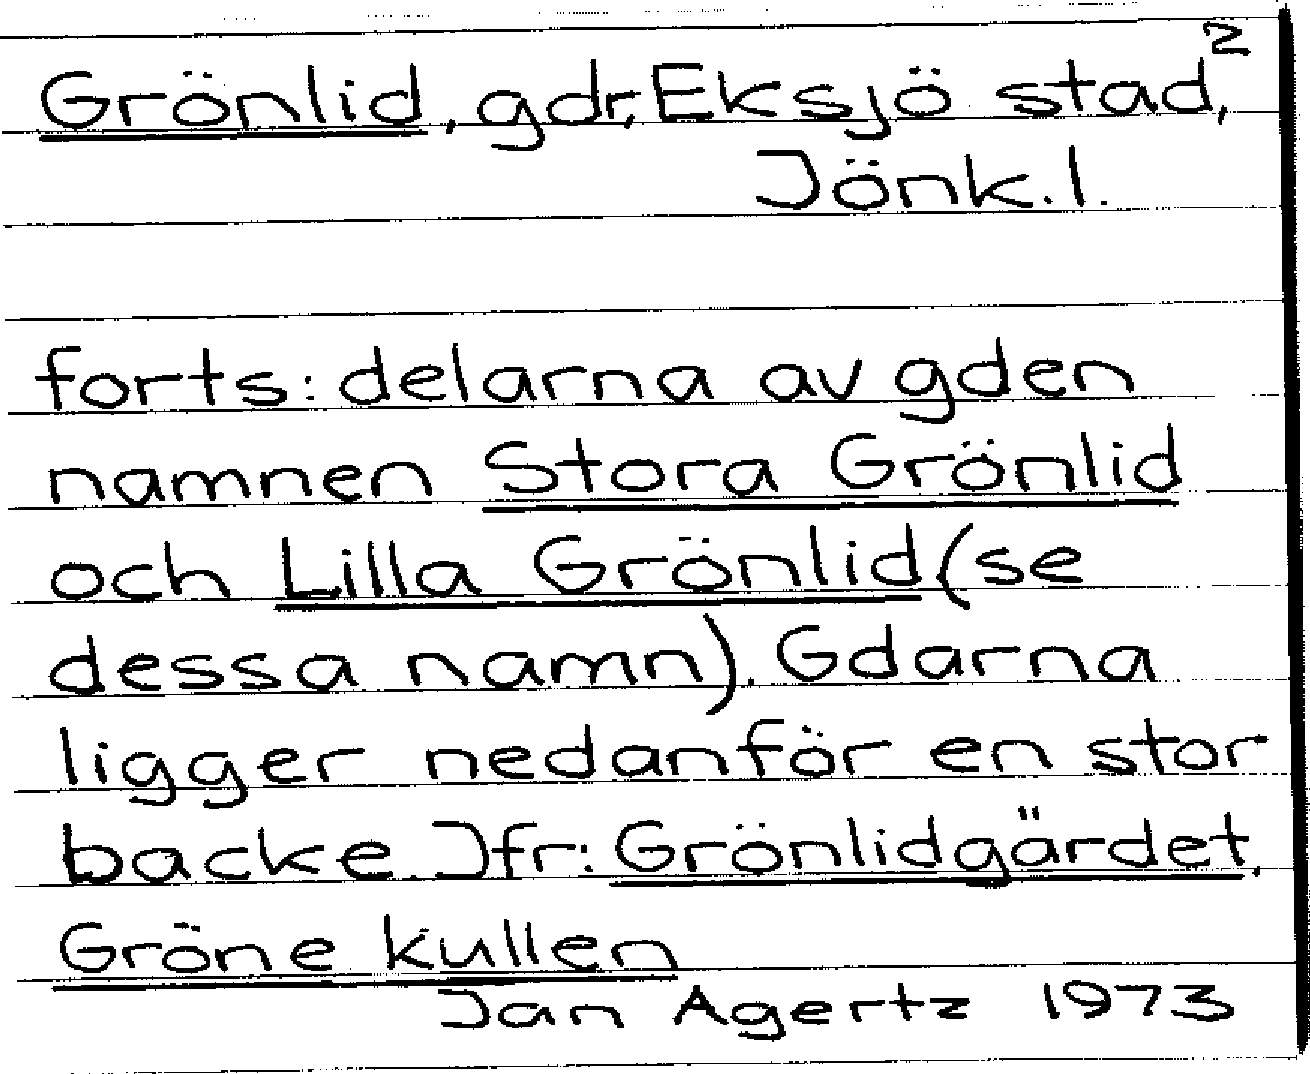 2
Grönlid, gdr, Eksjö stad,
Jönk.l.
forts: delarna av gden
namnen Stora Grönlid
och Lilla Grönlid (se
dessa namn). Gdarna
ligger nedanför en stor
backe. Jfr: Grönlidgärdet,
Gröne kullen
Jan Agertz 1973